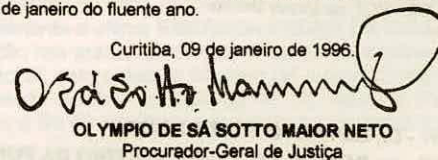 de janeiro do fluente ano.
Curitiba, 09 de janeiro de 1996.
OLYMPIO DE SÁ SOTTO MAIOR NETO
Procurador-Geral de Justiça